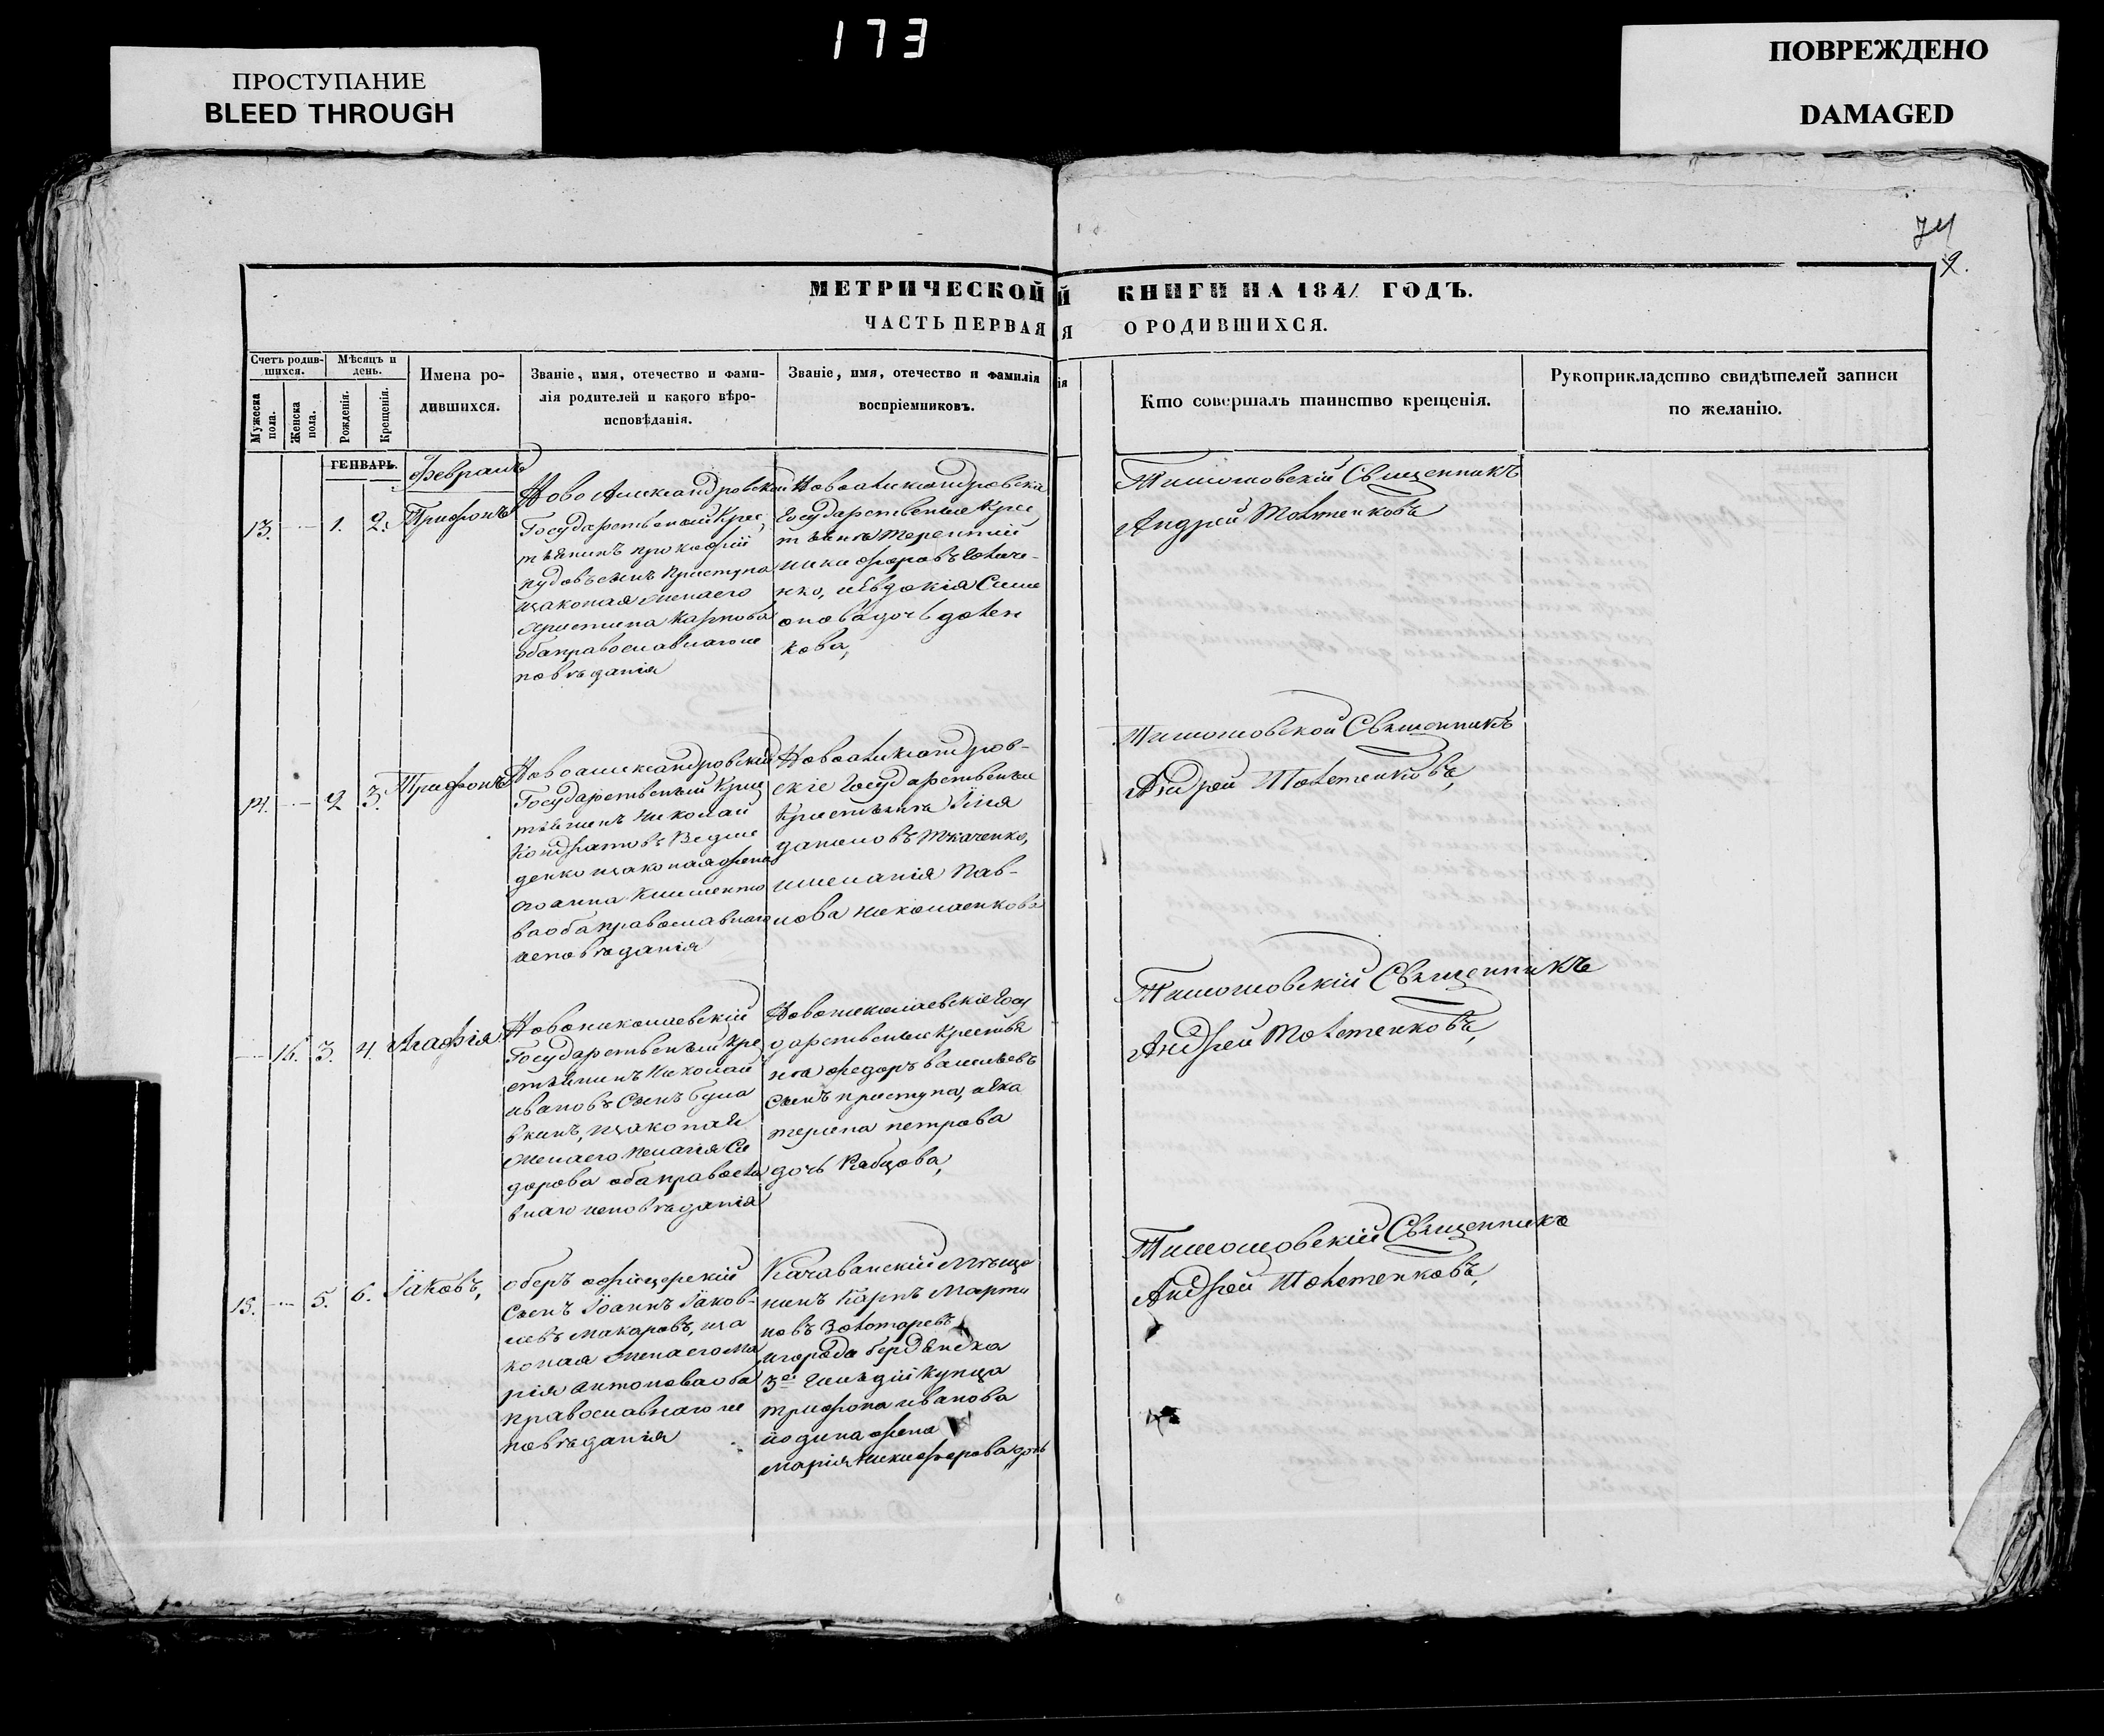 173
ПРОСТУПАНИЕ
BLEED THROUGH
ПОВРЕЖДЕНО
DAMAGED
74
9.
МЕТРИЧЕСКОЙ
ЧАСТЬ ПЕРВАЯ
Й КНИГИ НА 1841 ГОДЪ.
Я О РОДИВШИХСЯ.
Счетъ родив-
шихся.
Мужеска
пола.
Женска
пола.
Мѣсяцъ и
день.
Рожденія.
Крещенія.
Имена ро-
дившихся.
Званіе, имя, отечество и фами-
лія родителей и какого вѣро-
исповѣданія.
Званіе, имя, отечество и фамилія
воспріемниковъ.
ія
Кто совершалъ таинство крещенія.
Рукоприкладство свидѣтелей записи
по желанію.
ГЕНВАРЬ.
Февраль
13.
1.
2.
Трифонъ
Ново Александровскій
Государственный Крес
тьянинъ прокофій
сынъ Приступа
изаконая женаего
Христина Карпова
обаправославнаго ис
повѣданія
Новоалександровскіе
Государственные Крес
тьяне Терентий
никифоровъ
нко, иЕвдокія Симе
онова дочь
кова,
Тимошовскій Священникъ
Андрей Толстенковъ
14.
2
3.
Трифонъ
Новоалександровскій
Государственный Крес
тьянинъ Николай
Кондратовъ Ведме
денко изаконаяжена
его анна Климентье
ва оба православнаго
исповѣданія
Новоалександров-
скіе Государственные
Крестьяне Илія
даниловъ Ткаченко,
имеланія Пав-
лова Николаенкова
Тимошовской Священникъ
Андрей Толстенковъ,
16.
3.
4.
Агафія
Новониколаевскій
Государственный Кре
стьянинъ Николай
ивановъ Сынъ була
вкинъ, изаконая
женаего Пелагія Си
дорова оба православ
внаго исповѣданія
Новониколаевскіе Госу
дарственные Крестья
не федоръ васильевъ
Сынъ приступа, иека
терина петрова
дочь Рабцова,
Тимошовскій Священникъ
Андрей Толстенковъ,
15.
5.
6.
Іаковъ,
оберъ офицерскій
Сынъ Іоаннъ Іаков-
левъ Макаровъ, иза
коная женаего Ма
рія Антонова оба
православнаго ис
повѣданія
мѣща
нинъ Карпъ Марти
новъ Золотаревъ
игорода бердянска
3й Гильдіи Купца
трифона иванова
жена
Марія Никифорова дочь
Тимошовскій Священникъ
Андрей Толстенковъ,